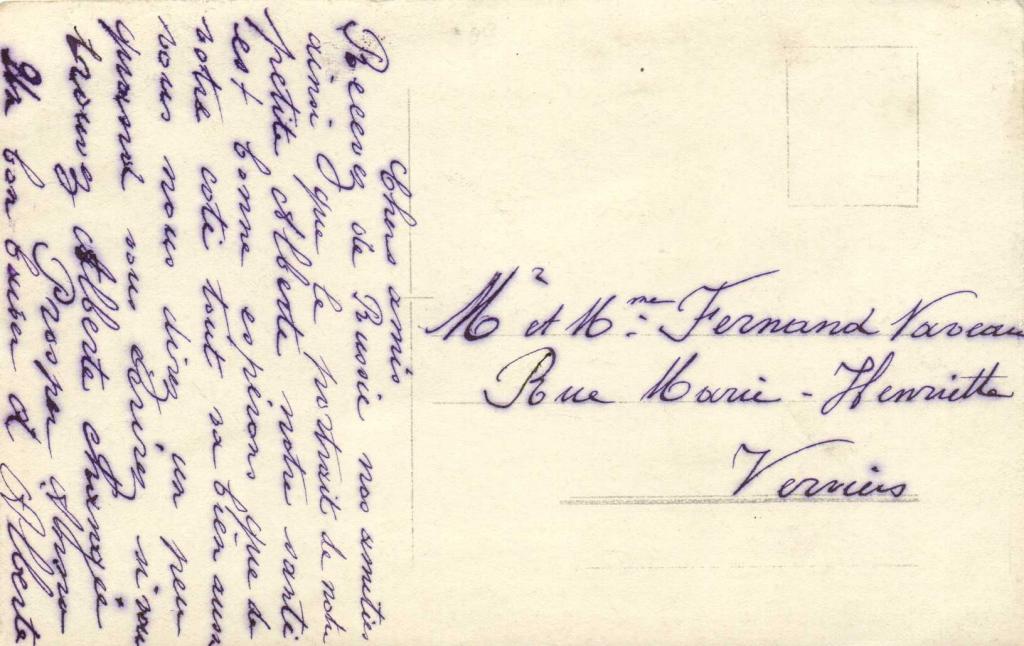 Chers amis
Recevez de Russie nos amities
ainsi que le portrait de notre
petite Alberte notre santé
est bonne esperons que de
votre coté tout va bien aussi
vous nous direz un peu
quand vous écrirez si vou
trouvez Alberte changée
Prosper
Un bon baiser d Alberte
Mr et Mme Fernand Vaveau
Rue Marie-Henriette
Verviers